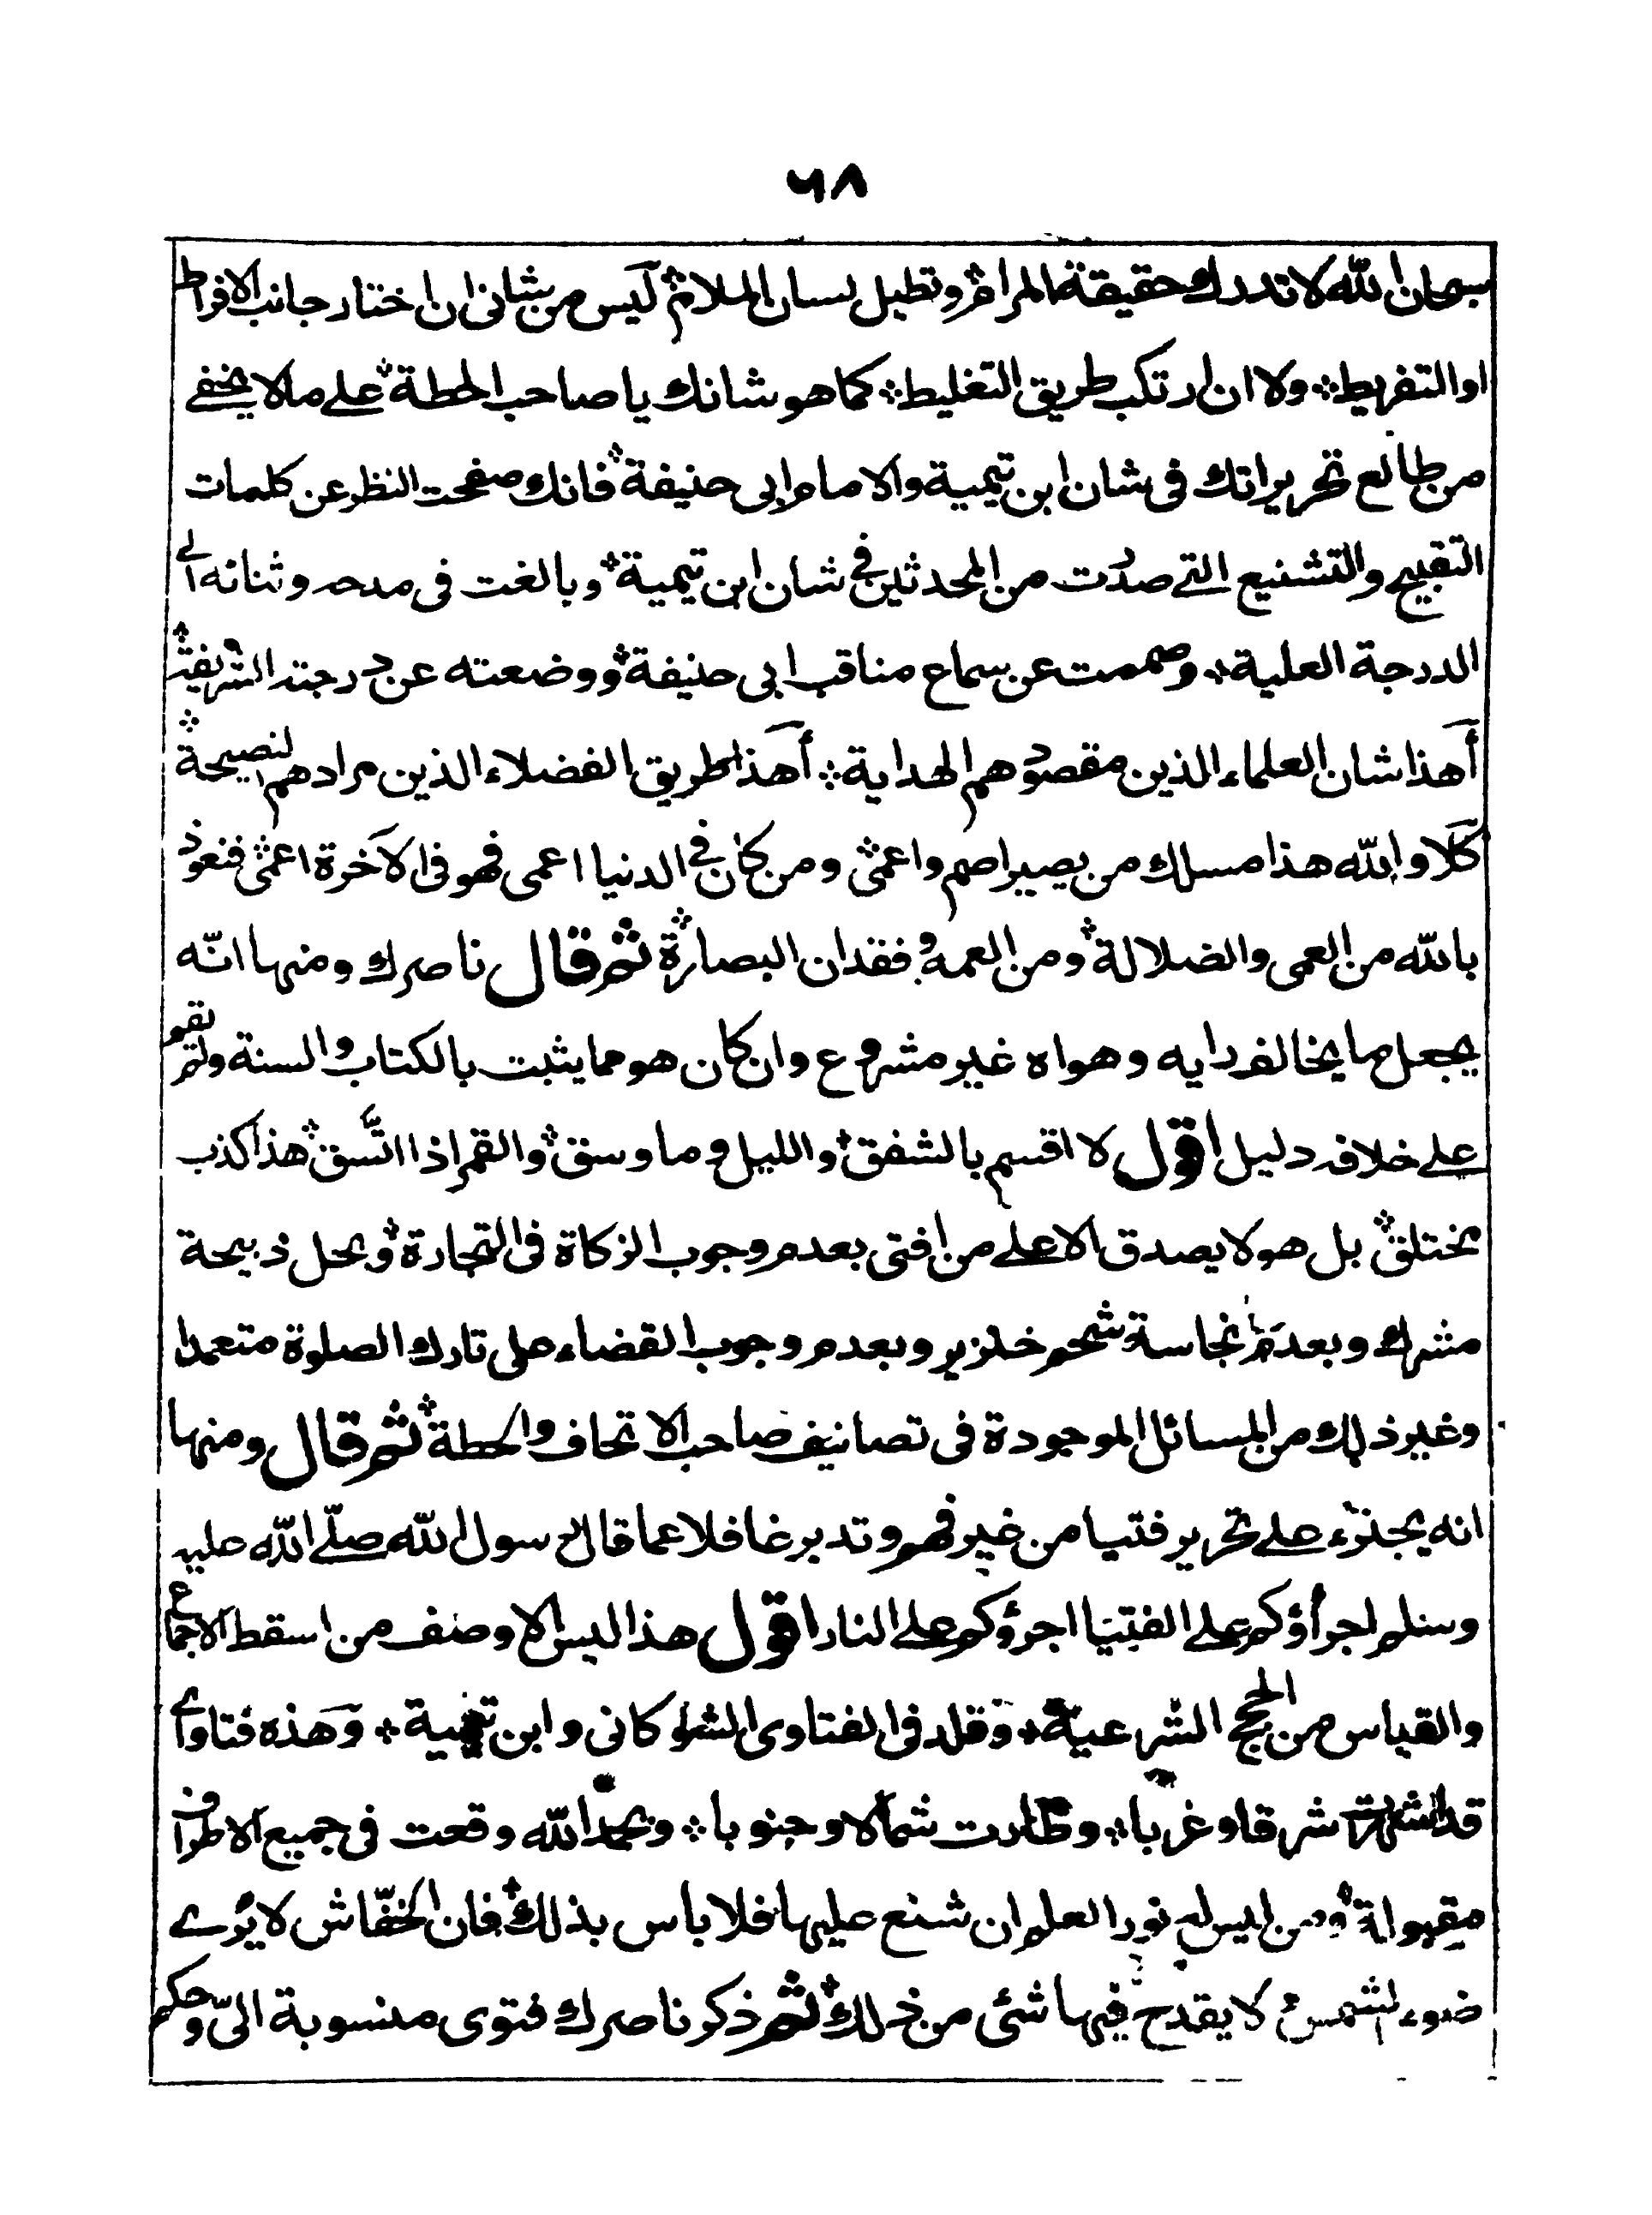 ٦٨
سبحان الله لا تدرك حقيقة المرام؞ وتطيل لسان الملام؞ ليس من شانى ان اختار جانب الافراط
او التفريط؞ ولا ان ارتكب طريق التغليط؞ كما هو شانك يا صاحب الحطة؞ على ما لا يخفى
من طالع تحريراتك فى شان ابن تيمية والامام ابى حنيفة؞ فانك صفحت النظر عن كلمات
التقبيح والتشنيع التى صدرت من المحدثين فى شان ابن تيمية؞ وبالغت فى مدحه وثنائه الى
الدرجة العلية؞ وصممت عن سماع مناقب ابى حنيفة؞ ووضعته عن درجته الشريفة؞
أهذا شان العلماء الذين مقصودهم الهداية؞ أهذا طريق الفضلاء الذين مرادهم النصيحة؞
كلا والله هذا مسلك من يصير اصم واعمى؞ ومن كان فى الدنيا اعمى فهو فى الآخرة اعمى؞ فنعوذ
بالله من العمى والضلالة؞ ومن العمه وفقدان البصارة؞ ثم قال ناصرك ومنها انّه
يجعل ما يخالف رايه وهواه غير مشروع وان كان هو مما يثبت بالكتاب والسنة ولم يقم
على خلافه دليل اقول لا اقسم بالشفق؞ والليل وما وسق؞ والقمر اذا اتّسق؞ هذا كذب
مختلق؞ بل هو لا يصدق الا على من افتى بعدم وجوب الزكاة فى التجارة؞ وبحل ذبيحة
مشرك وبعدم نجاسة شحم خنزير وبعدم وجوب القضاء على تارك الصلوة متعمدا
وغير ذلك من المسائل الموجودة فى تصانيف صاحب الاتحاف والحطة؞ ثم قال ومنها
انه يجترء على تحرير فتيا من غير فهم وتدبر غافلا عما قال رسول الله صلّى الله عليه
وسلم اجرأؤكم على الفتيا اجرؤكم على النار اقول هذا ليس الا وصف من اسقط الاجماع
والقياس من الحجج الشرعية؞ وقلد فى الفتاوى الشوكانى وابن تيمية؞ وهذه فتاواى
قد اشتهرت شرقا وغربا؞ وطارت شمالا وجنوبا؞ وبحمد الله وقعت فى جميع الاطراف
مقبولة؞ ومن ليس له نور العلم ان شنع عليها فلا باس بذلك؞ فان الخفّاش لا يرى
ضوء الشمس؞ لا يقدح فيها شئ من ذلك؞ ثم ذكر ناصرك فتوى منسوبة الىّ وحكم